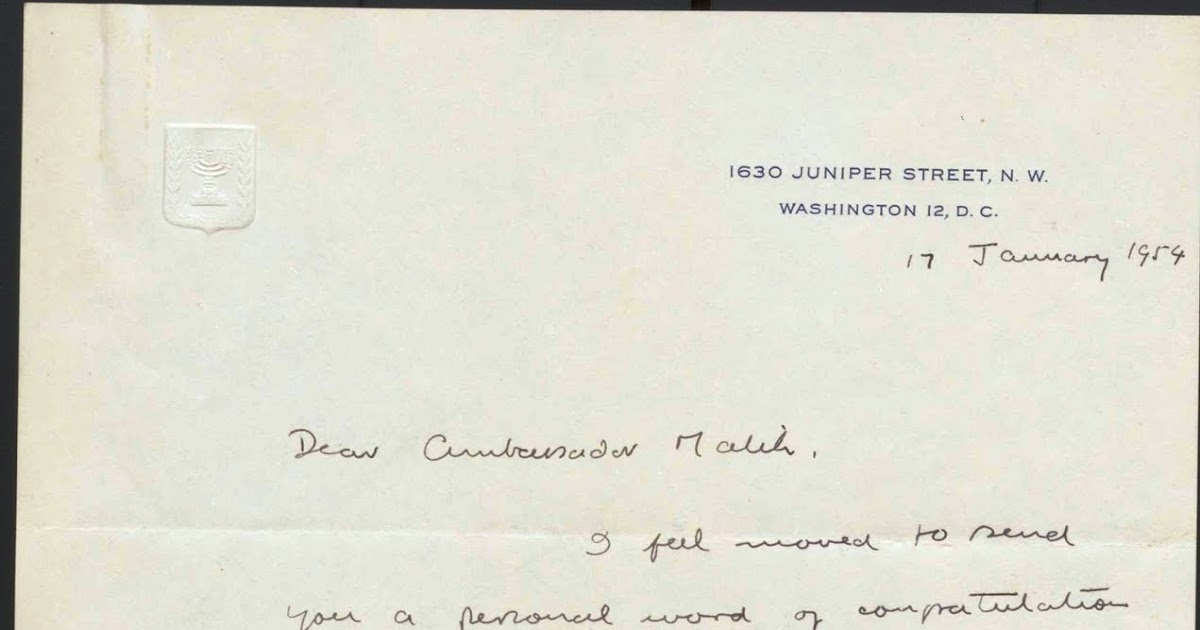 1630 JUNIPER STREET, N. W.
WASHINGTON 12, D. C.
17 January 1954
Dear Ambassador Malik,
I feel moved to send
you a personal word of congratulation